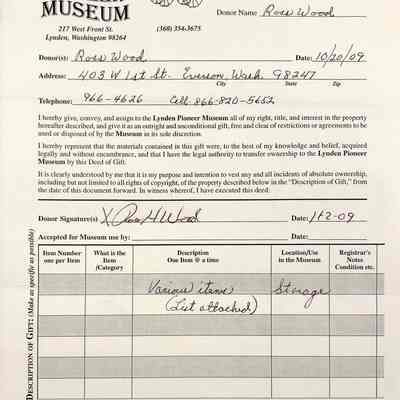 MUSEUM
217 West Front St.
Lynden, Washington 98264
(360) 354-3675
Donor Name Ross Wood
Donor(s): Ross Wood Date: 10/20/09
Address: 403 W 1st St. Everson, Wash. 98247
City State Zip
Telephone: 966-4626 Cell: 866-820-5652
I hereby give, convey, and assign to the Lynden Pioneer Museum all of my right, title, and interest in the property
hereafter described, and give it as an outright and unconditional gift, free and clear of restrictions or agreements to be
used or disposed of by the Museum in its sole discretion.
I hereby represent that the materials contained in this gift were, to the best of my knowledge and belief, acquired
legally and without encumbrance, and that I have the legal authority to transfer ownership to the Lynden Pioneer
Museum by this Deed of Gift.
It is clearly understood by me that it is my purpose and intention to vest any and all incidents of absolute ownership,
including but not limited to all rights of copyright, of the property described below in the "Description of Gift," from the
date of this document forward. In witness whereof, I have executed this deed.
Donor Signature(s) X Ross H Wood Date: 11-2-09
Accepted for Museum use by: Date:
DESCRIPTION OF GIFT: (Make as specific as possible)
Item Number
one per Item
What is the
Item
/Category
Description
One Item @ a time
Location/Use
in the Museum
Registrar's
Notes
Condition etc.
Various items
(List attached)
Storage